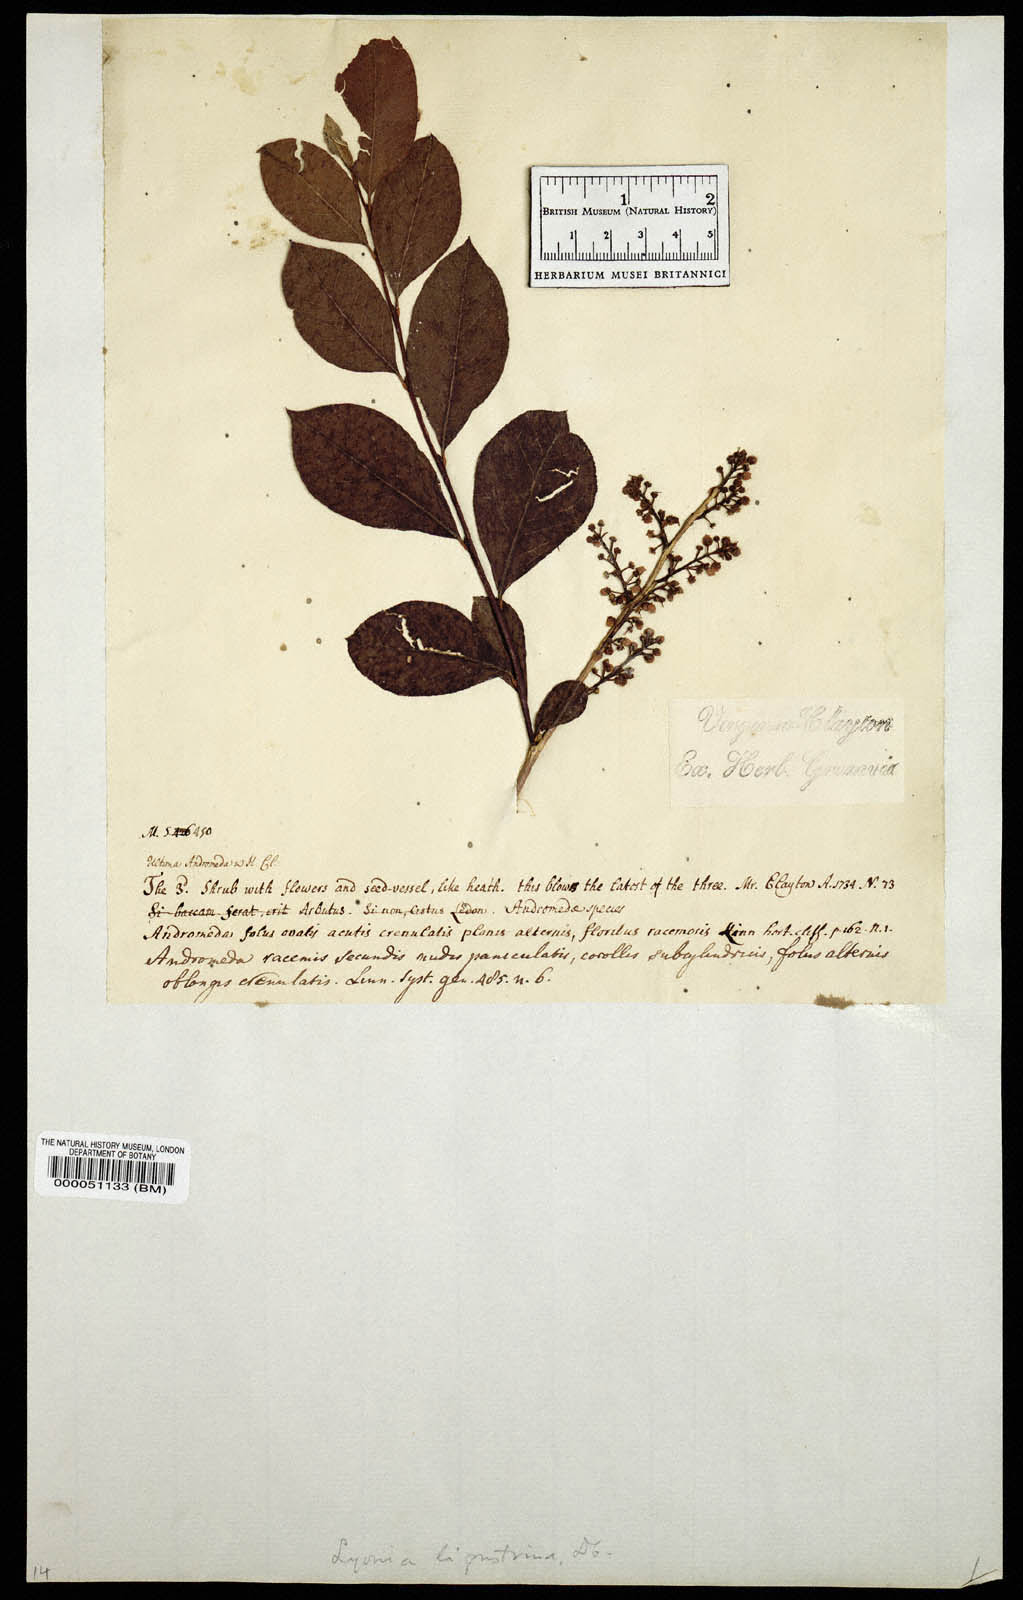 1 2
BRITISH MUSEUM (NATURAL HISTORY)
1 2 3 4 5
HERBARIUM MUSEI BRITANNICI
Clayton
Ex. Herb.
M. 450
Andromeda H. Cl.
The 3. Shrub with flowers and seed-vessel, like heath. this blows the latest of the three. Mr. Clayton A. 1734. N. 73
Si baccam ferat, erit Arbutus. Si non, Cistus Ledon. Andromedæ species
Andromeda foliis ovatis acutis crenulatis planis alternis, floribus racemosis Linn hort. cliff. p. 162. n. 1.
Andromeda racemis secundis nudis paniculatis, corollis subcylindricis, foliis alternis
oblongis crenulatis. Linn. Syst. gen. 485. n. 6.
THE NATURAL HISTORY MUSEUM, LONDON
DEPARTMENT OF BOTANY
000051133 (BM)
Lyonia ligustrina, DC.
14